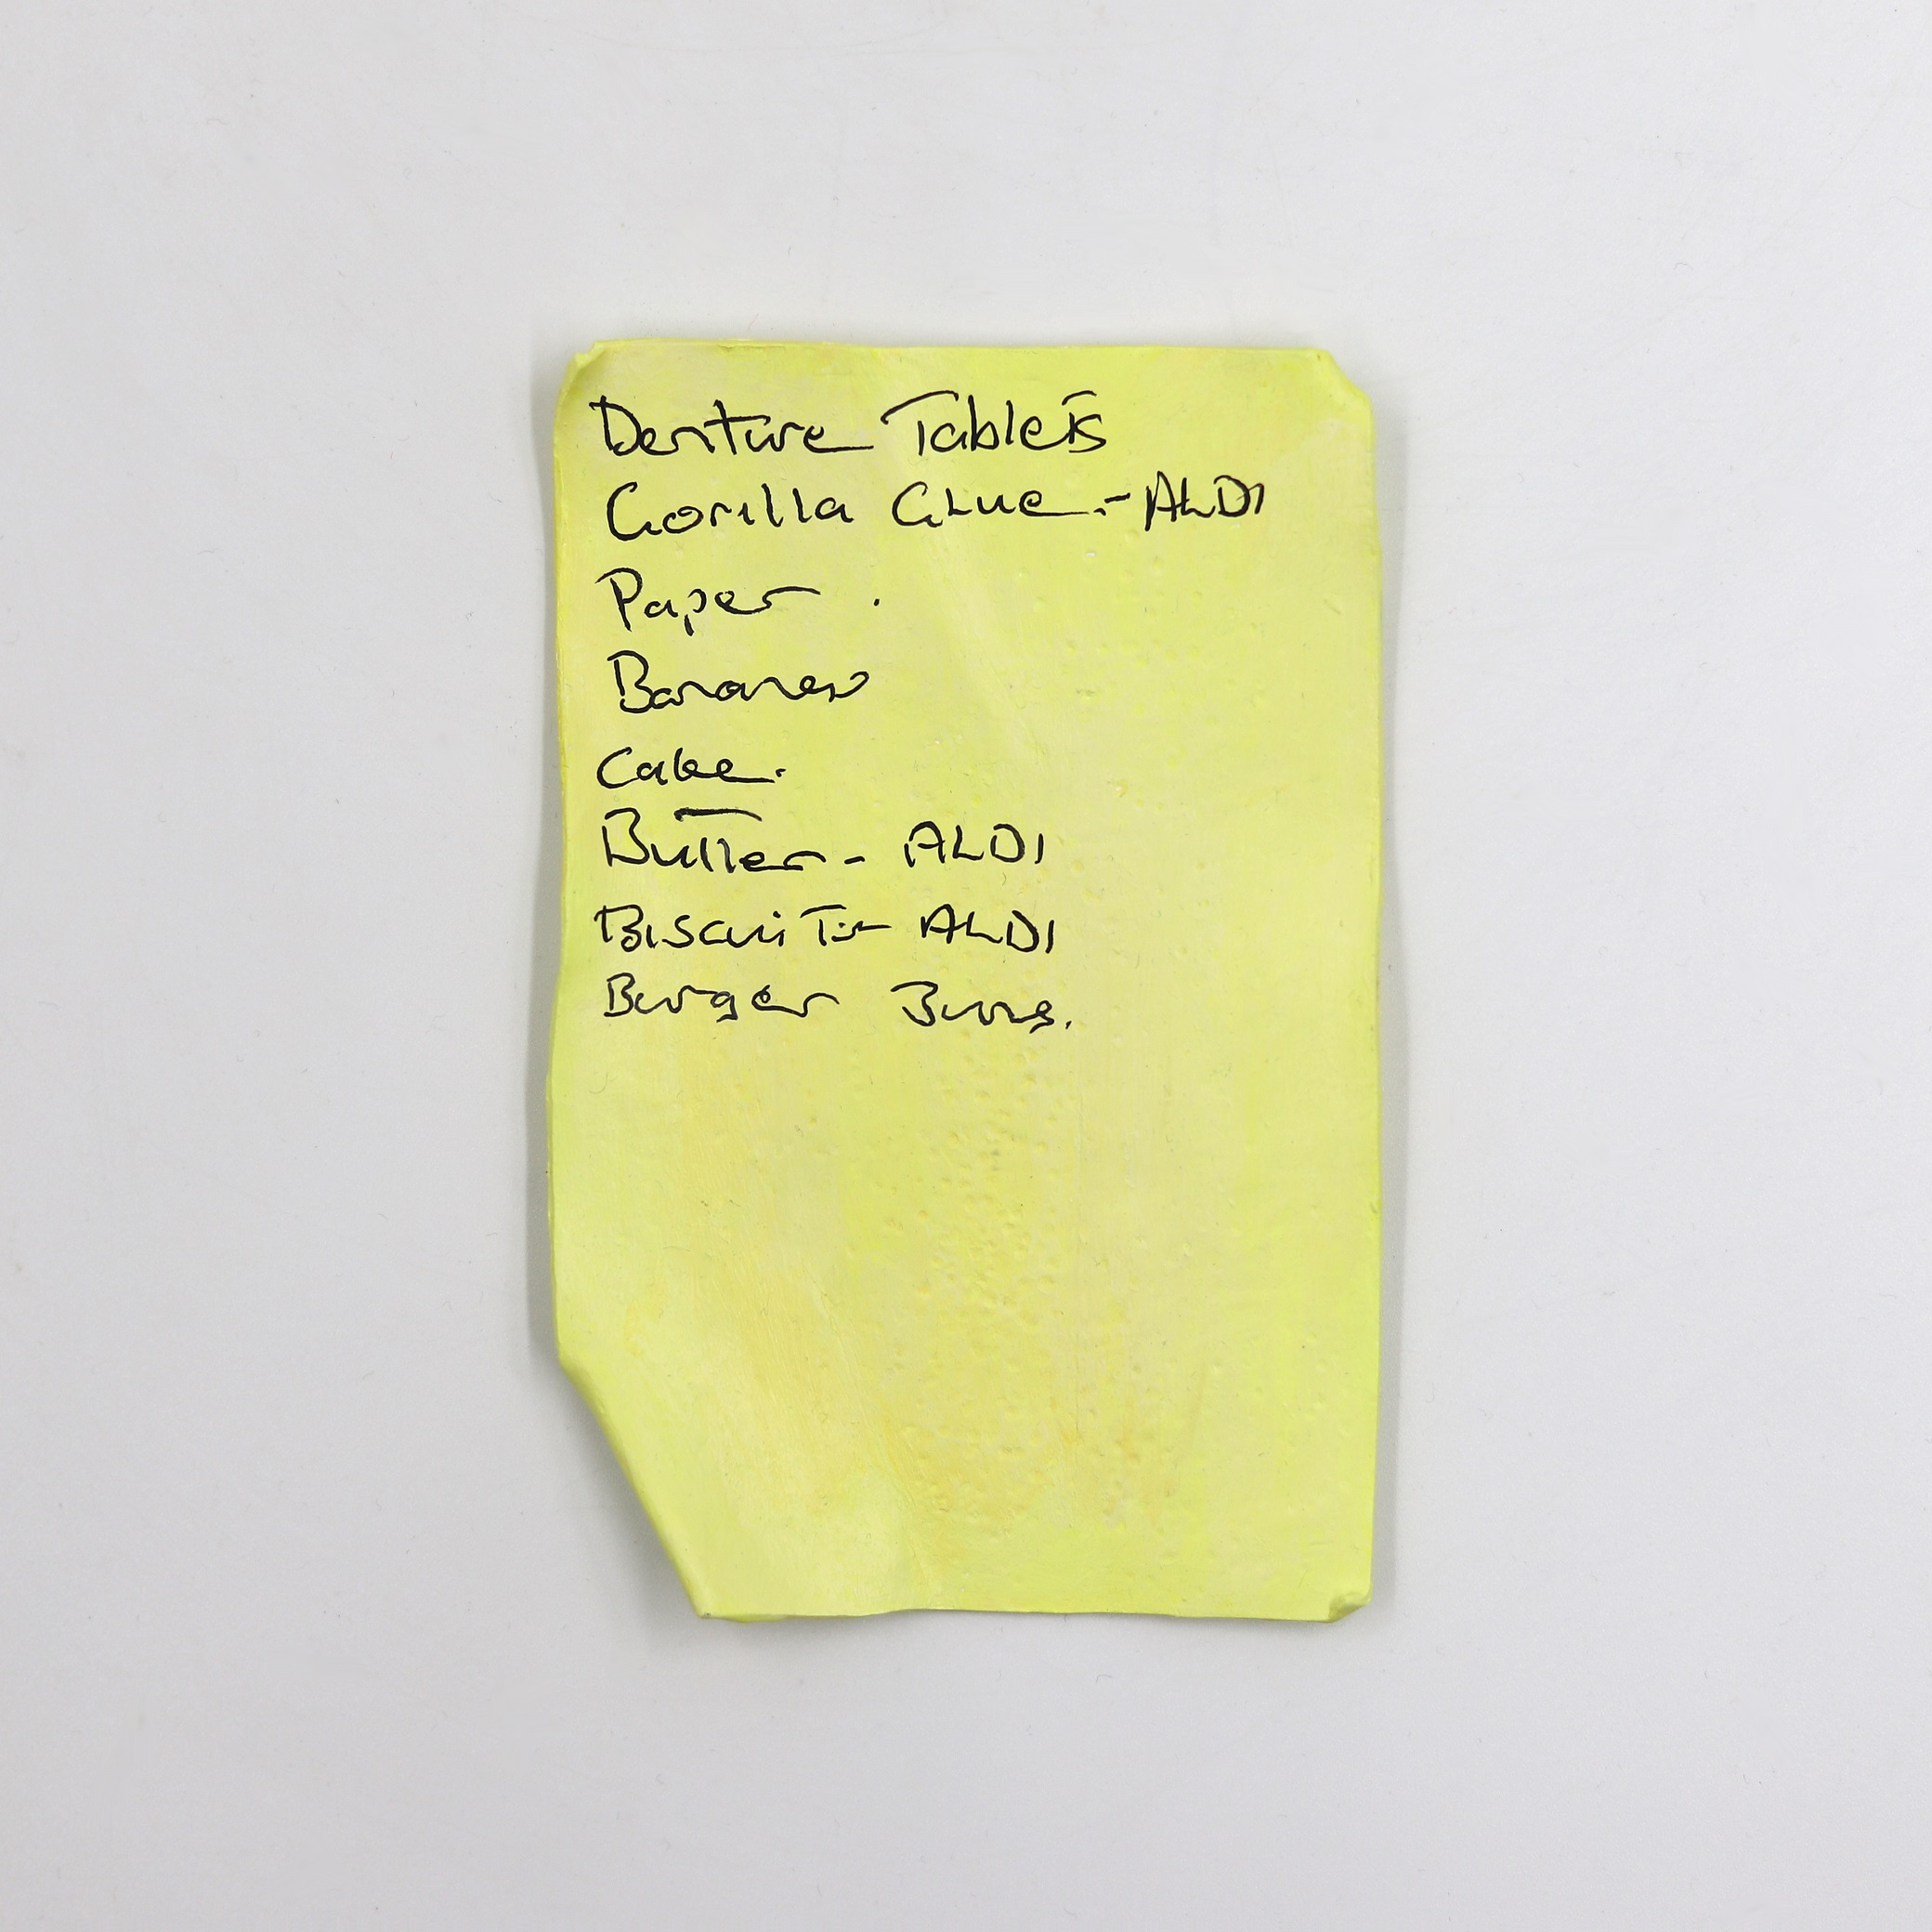 Denture Tablets
Gorilla Glue - ALDI
Paper .
Bananas
Cake.
Butter - ALDI
Biscuits - ALDI
Burger Buns.